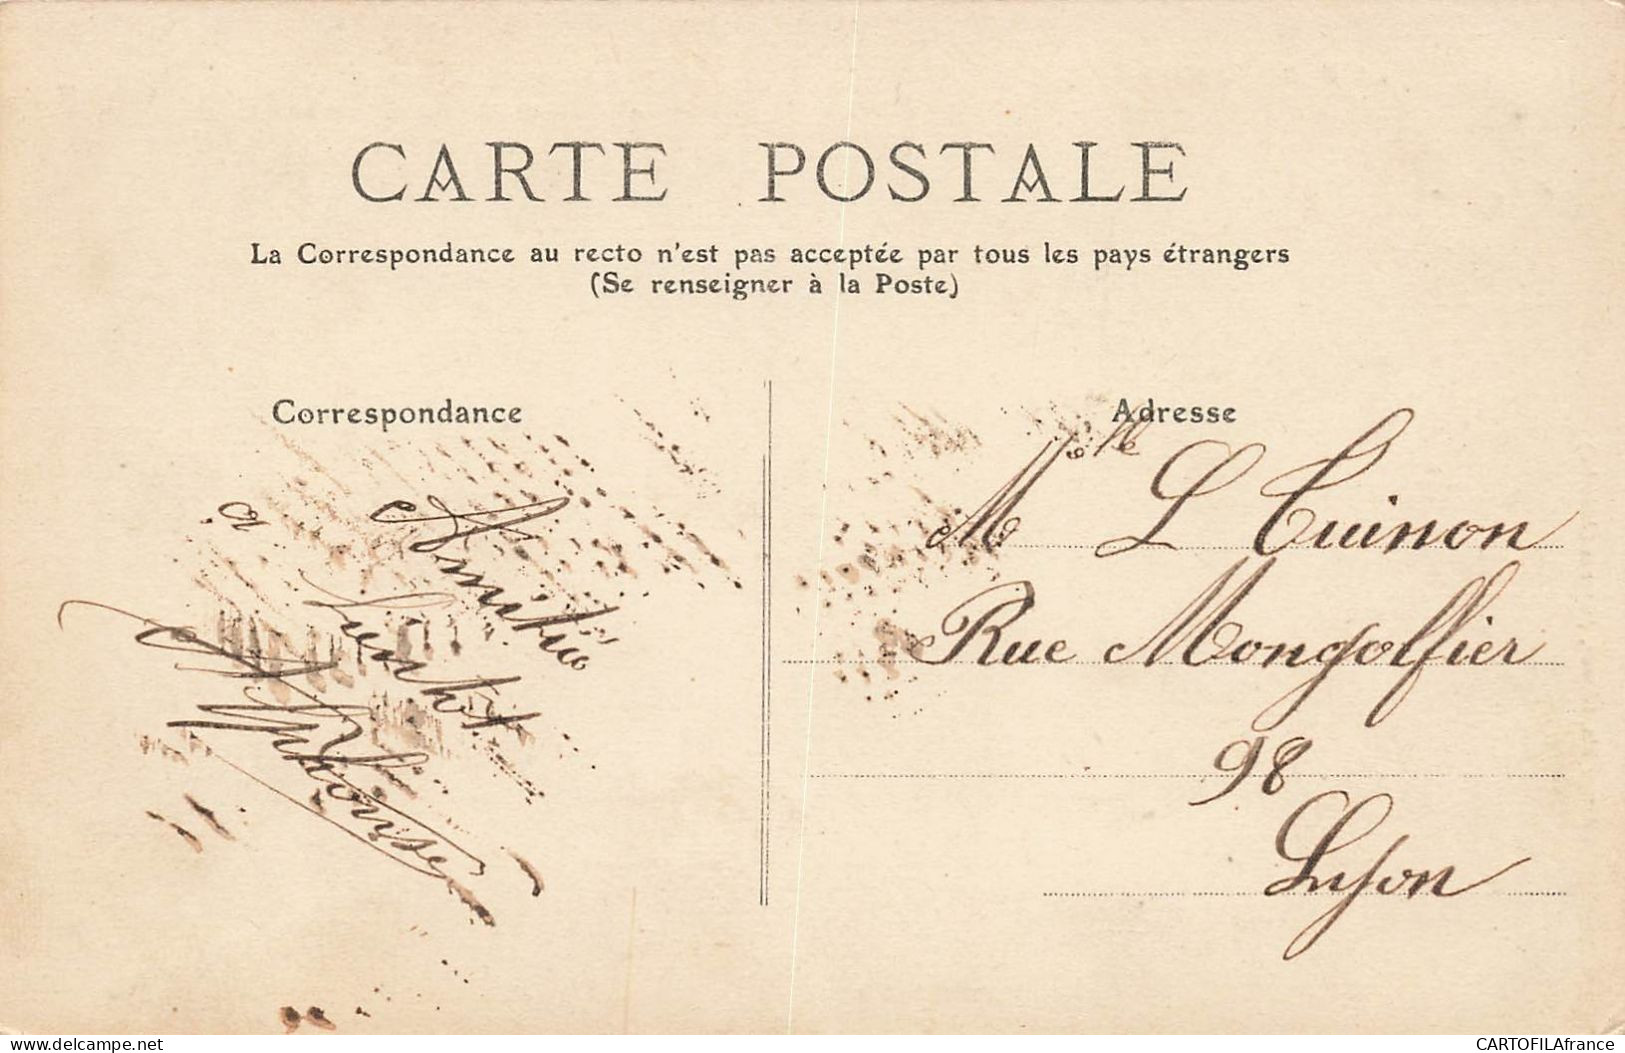 CARTE POSTALE
La Correspondance au recto n'est pas acceptée par tous les pays étrangers
(Se renseigner à la Poste)
Correspondance
Amitiés
a bientôt
Alphonse
Adresse
Melle L Cuinon
Rue Mongolfier
98
Lyon
delcampe.net
CARTOFILAfrance